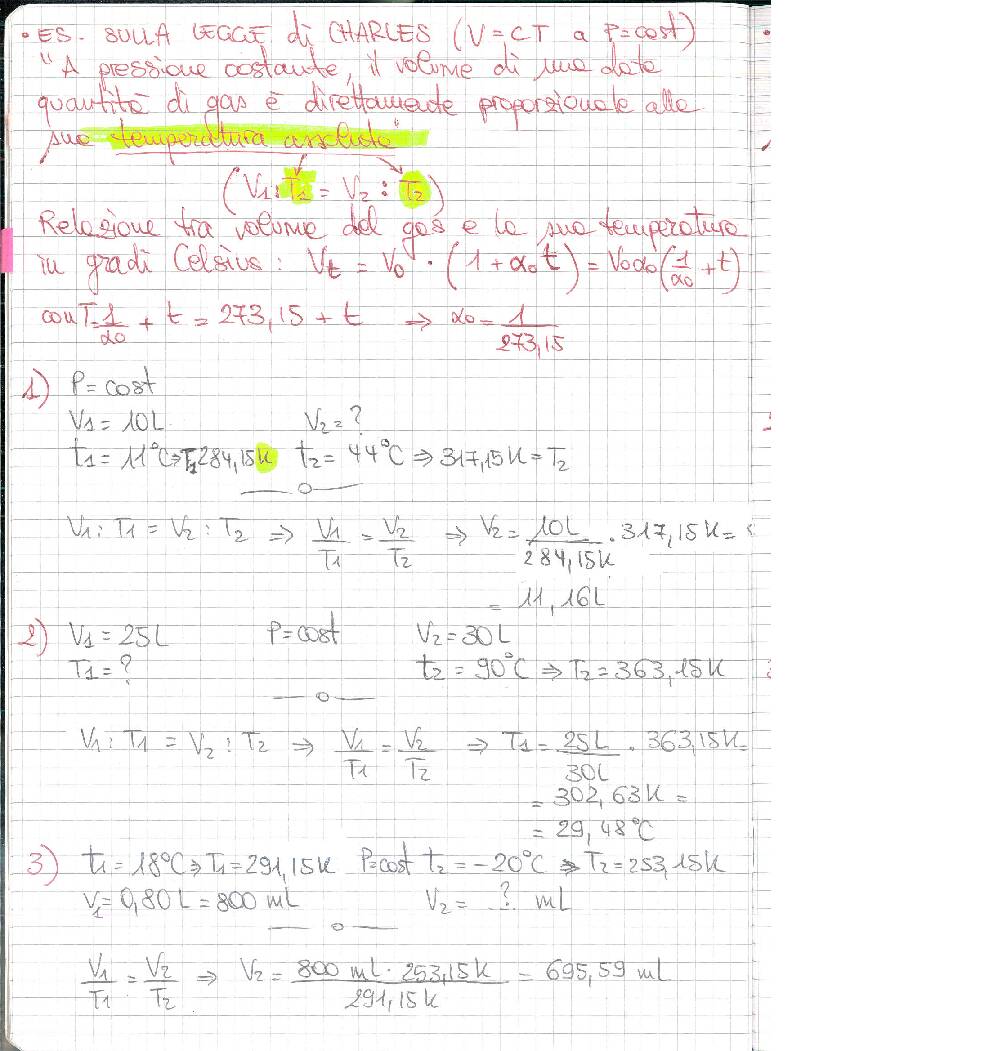 • ES. SULLA LEGGE di CHARLES (V=CT a P=cost)
"A pressione costante, il volume di una data
quantità di gas è direttamente proporzionale alla
sua temperatura assoluta"
(V1:T1 = V2 : T2)
Relazione tra volume del gas e la sua temperatura
in gradi Celsius: Vt = V0 · (1 + α0 t) = V0α0(1/α0 + t)
con T=1/α0 + t = 273,15 + t ⇒ α0 = 1/273,15
1) P = cost
V1 = 10L V2 = ?
t1 = 11°C⇒T1 284,15K t2 = 44°C ⇒ 317,15K = T2
V1 : T1 = V2 : T2 ⇒ V1/T1 = V2/T2 ⇒ V2 = 10L/284,15K · 317,15K =
= 11,16L
2) V1 = 25L P=cost V2 = 30L
T1 = ? t2 = 90°C ⇒ T2 = 363,15K
V1 : T1 = V2 : T2 ⇒ V1/T1 = V2/T2 ⇒ T1 = 25L/30L · 363,15K =
= 302,63K =
= 29,48°C
3) t1 = 18°C ⇒ T1 = 291,15K P=cost t2 = -20°C ⇒ T2 = 253,15K
V1 = 0,80L = 800 mL V2 = ? mL
V1/T1 = V2/T2 ⇒ V2 = 800 mL · 253,15K/291,15K = 695,59 mL